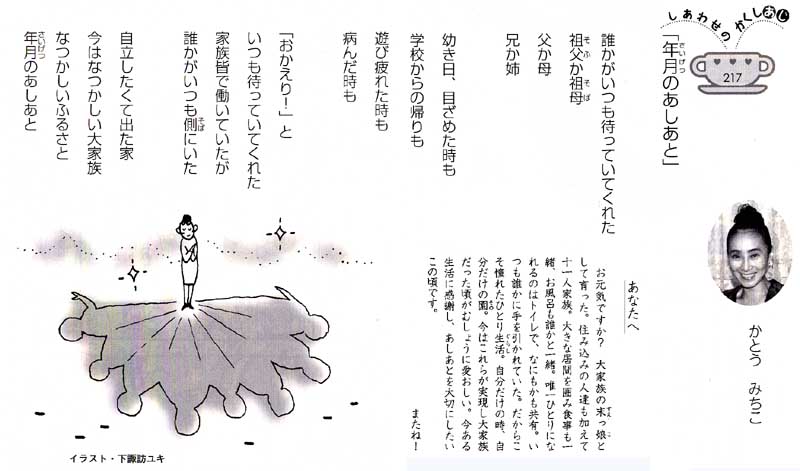 しあわせのかくしあじ
217
「年月のあしあと」
さいげつ
かとう みちこ
誰かがいつも待っていてくれた
祖父か祖母
そふ そぼ
父か母
兄か姉
幼き日、目ざめた時も
学校からの帰りも
遊び疲れた時も
病んだ時も
「おかえり！」と
いつも待っていてくれた
家族皆で働いていたが
誰かがいつも側にいた
そば
自立したくて出た家
今はなつかしい大家族
なつかしいふるさと
年月のあしあと
さいげつ
あなたへ
お元気ですか? 大家族の末っ娘と
して育った。住み込みの人達も加えて
十一人家族。大きな居間を囲み食事も一
緒、お風呂も誰かと一緒。唯一ひとりにな
れるのはトイレで、なにもかも共有。い
つも誰かに手を引かれていた。だからこ
そ憧れたひとり生活。自分だけの時、自
分だけの園。今はこれらが実現し大家族
だった頃がむしょうに愛おしい。今ある
生活に感謝し、あしあとを大切にしたい
この頃です。
またね！
イラスト・下諏訪ユキ